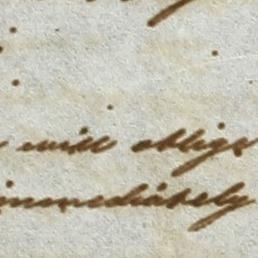 will oblige
immediately